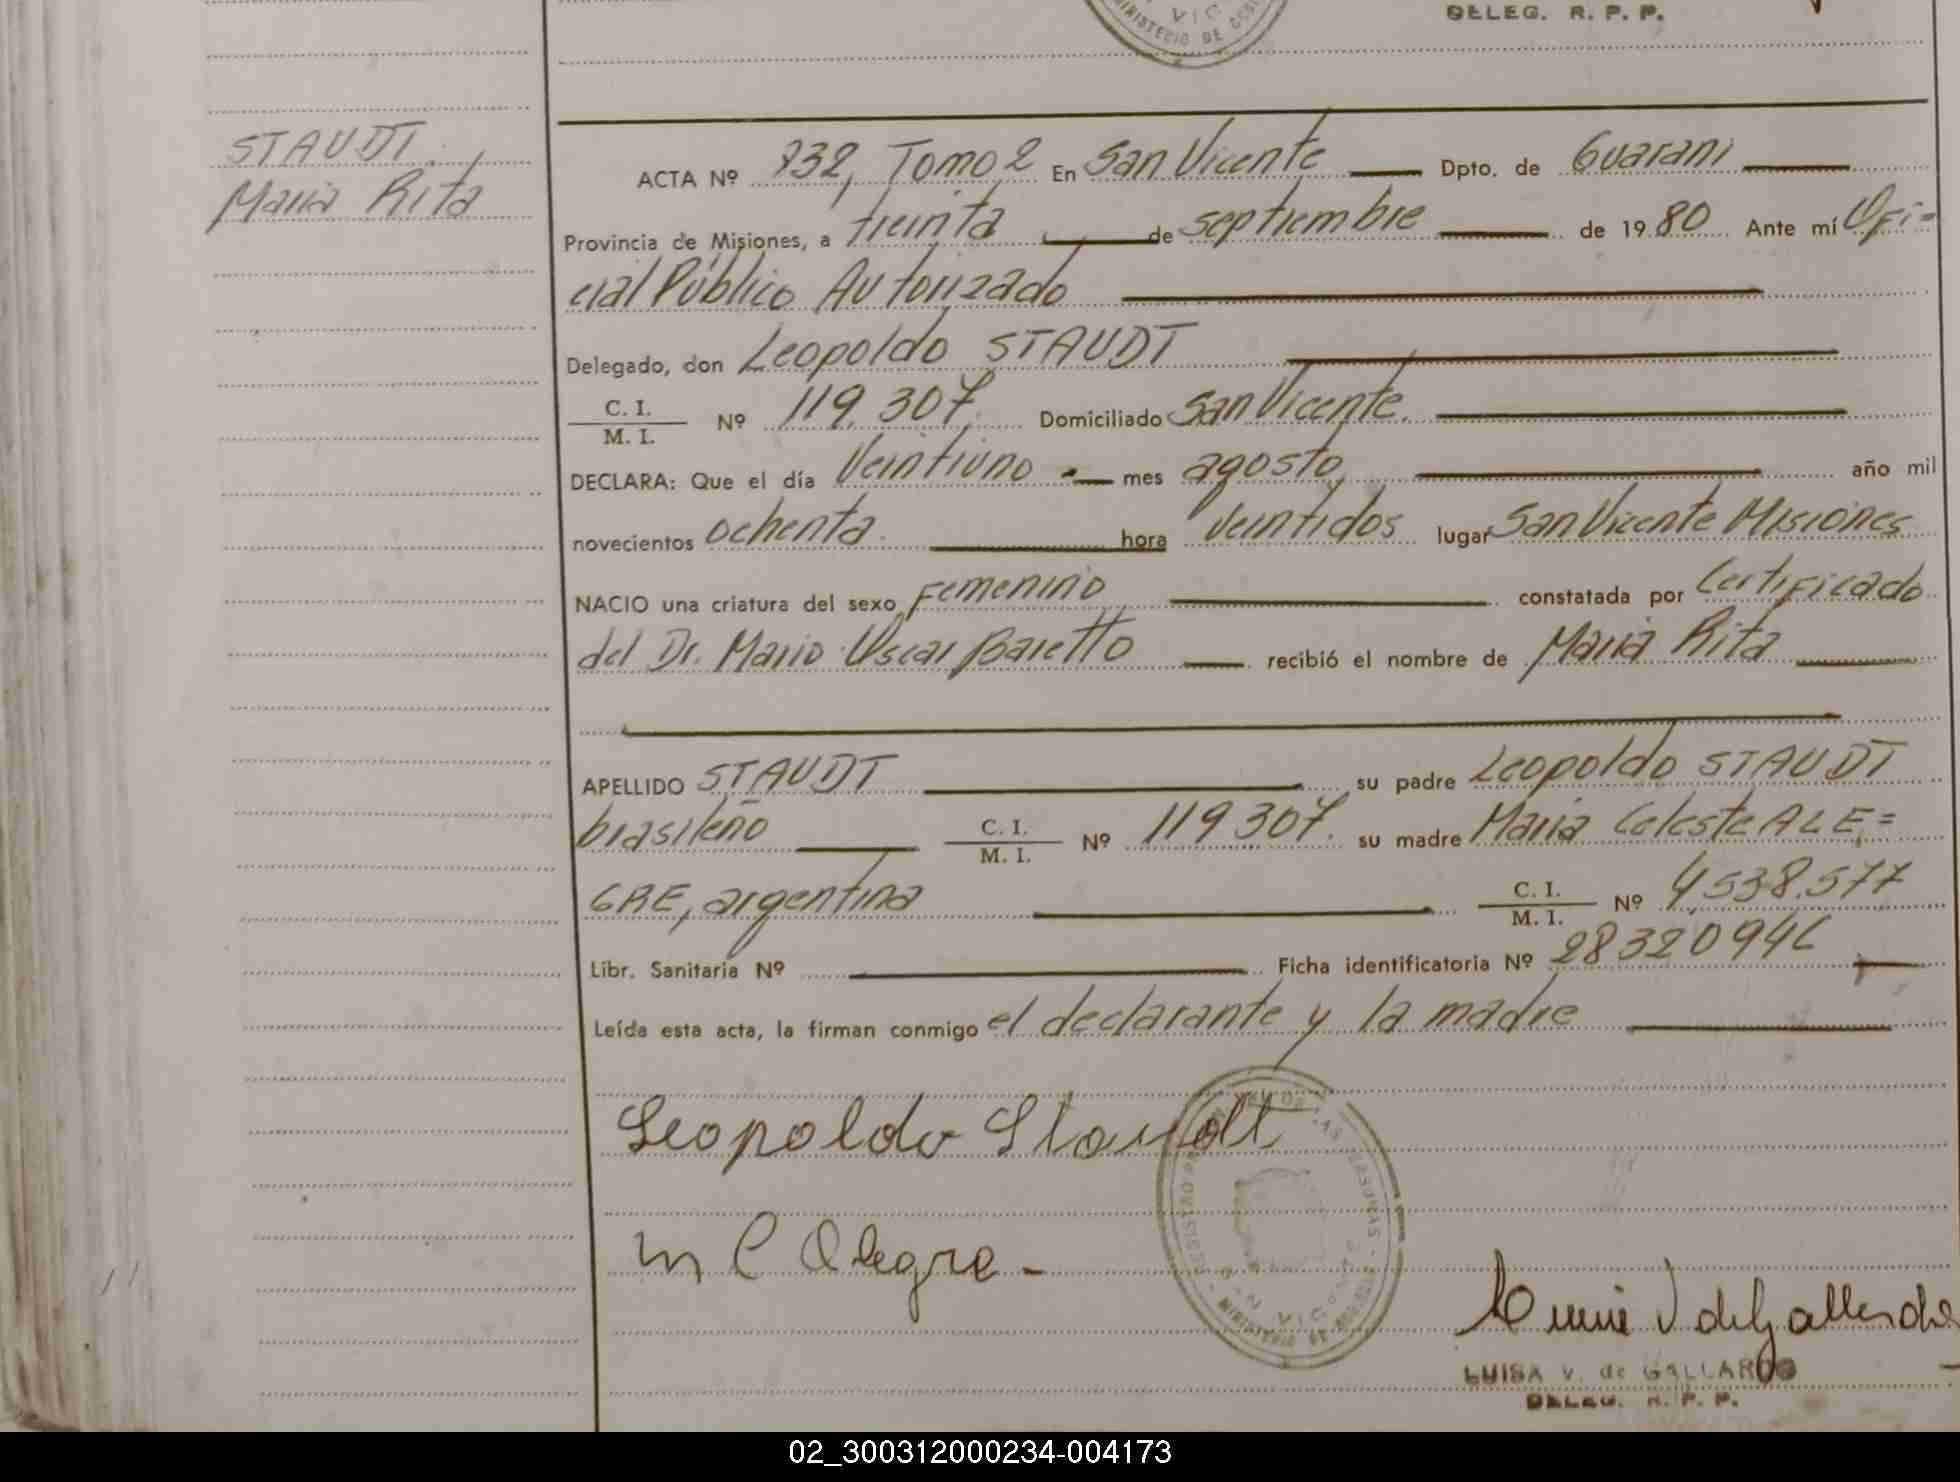 DELEG. R. P. P.
STAUDT
Maria Rita
ACTA Nº 732, Tomo 2 En San Vicente Dpto. de Guarani
Provincia de Misiones, a treinta de septiembre de 1980 Ante mí Ofi=
cial Público Autorizado
Delegado, don Leopoldo STAUDT
C. I.
M. I. Nº 119.307. Domiciliado San Vicente.
DECLARA: Que el día Veintiuno mes agosto, año mil
novecientos ochenta. hora Veintidos lugar San Vicente Misiones
NACIO una criatura del sexo Femenino constatada por Certificado
del Dr. Mario Oscar Baretto recibió el nombre de Maria Rita
APELLIDO STAUDT su padre Leopoldo STAUDT
brasileño C. I.
M. I. Nº 119307. su madre Maria Celeste ALE=
GRE, argentina C. I.
M. I. Nº 4.538.577
Libr. Sanitaria Nº Ficha identificatoria Nº
Leída esta acta, la firman conmigo el declarante y la madre
Leopoldo Staudt
M C Alegre.-
LUISA V. de GALLARDO
DELEG. R. P. P.
02_300312000234-004173